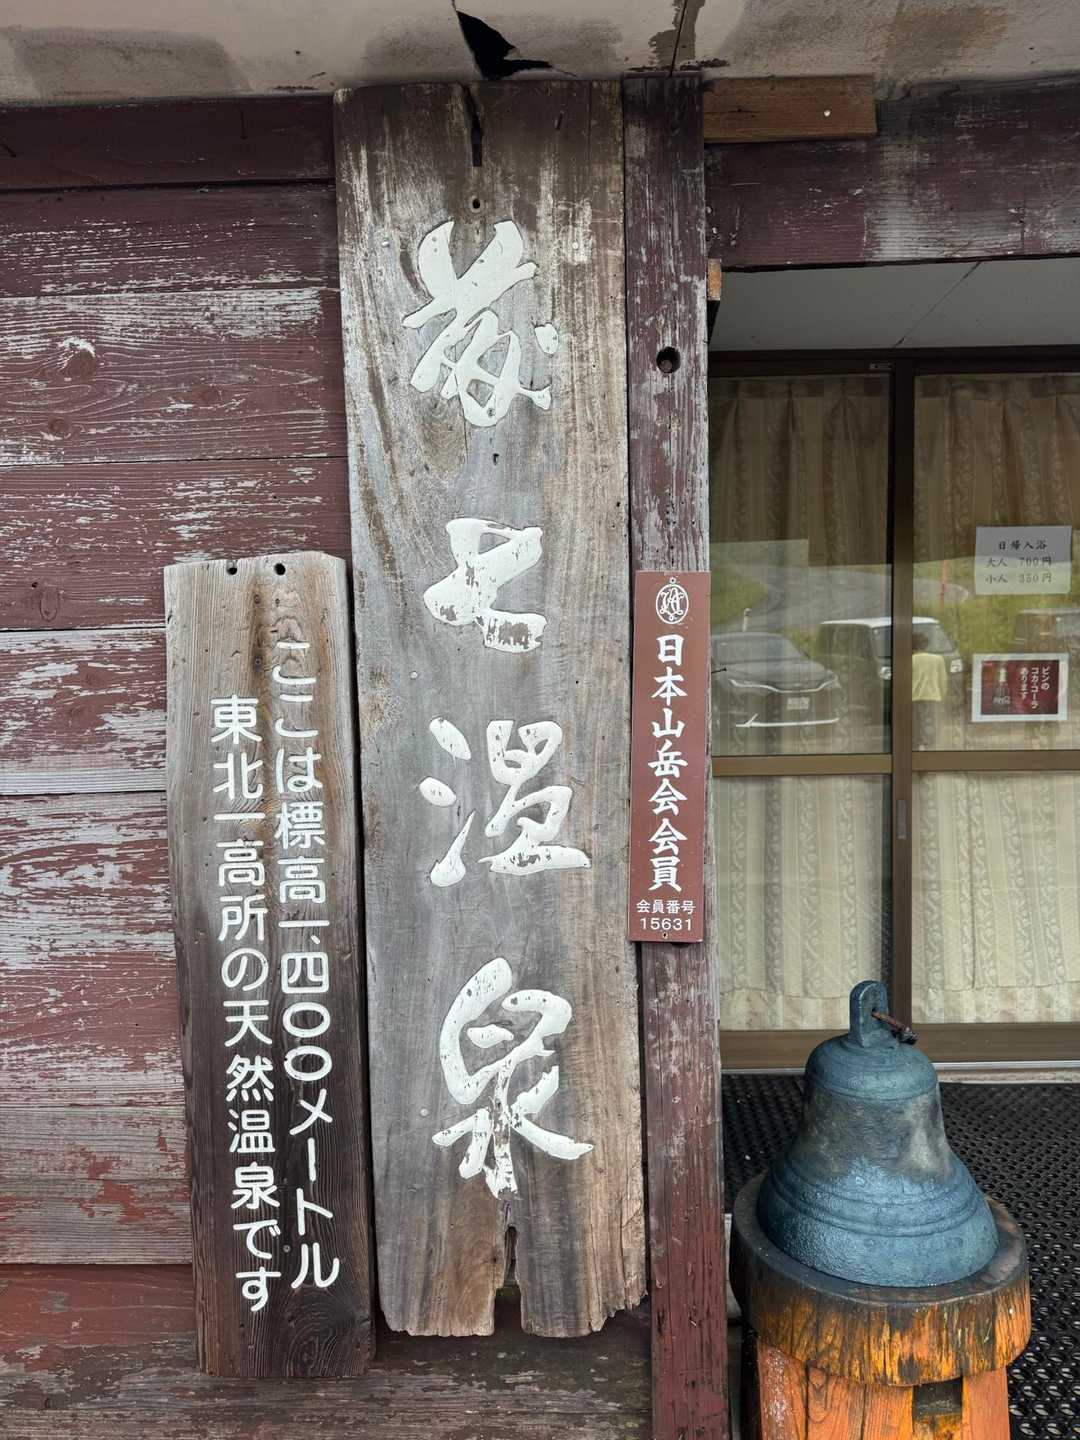 藤七温泉
ここは標高一、四〇〇メートル
東北一高所の天然温泉です
日本山岳会会員
会員番号
15631
日帰入浴
大人 700円
小人 350円
ビンの
コカ・コーラ
あります